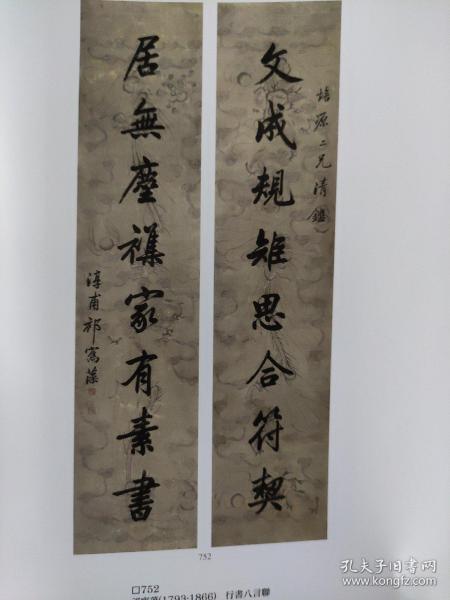 培源二兄清鑑
文成規雉思合符契
居無塵襍家有素書
淳甫祁寯藻
752
□752
祁寯藻(1793-1866) 行書八言聯
孔夫子旧书网